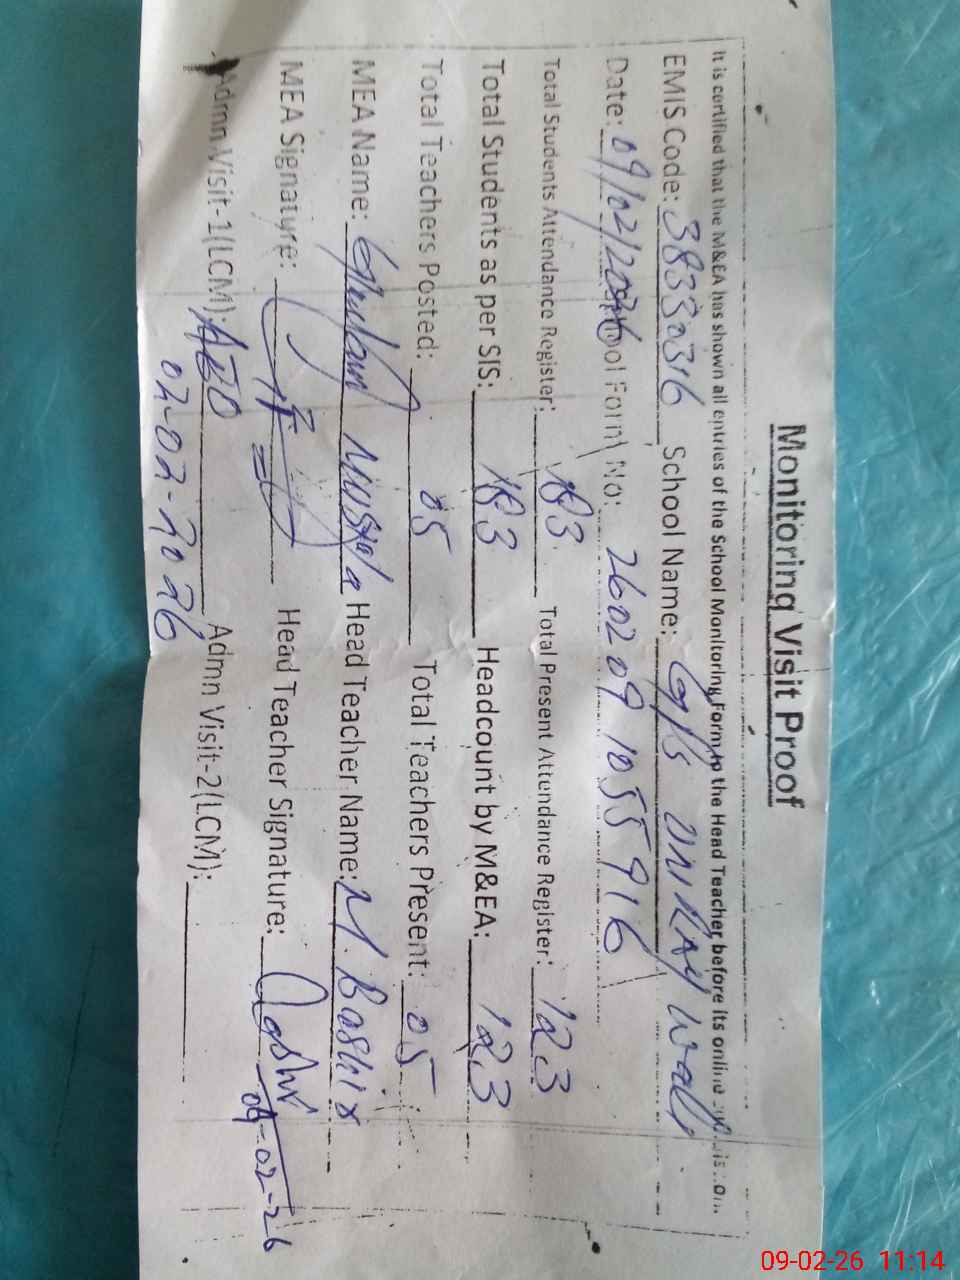 Monitoring Visit Proof
It is certified that the M&EA has shown all entries of the School Monitoring Form to the Head Teacher before its online
EMIS Code: 38330316 School Name: G/S
Date: 09/02/2026 School Form No: 260209 1055916
Total Students Attendance Register: 183 Total Present Attendance Register: 123
Total Students as per SIS: 183 Headcount by M&EA: 123
Total Teachers Posted: 05 Total Teachers Present: 05
MEA Name: Ghulam Head Teacher Name: M. Bashir
MEA Signature: Head Teacher Signature:
09-02-26
Admn Visit-1(LCM): AEO Admn Visit-2(LCM):
02-02-2026
09-02-26 11:14